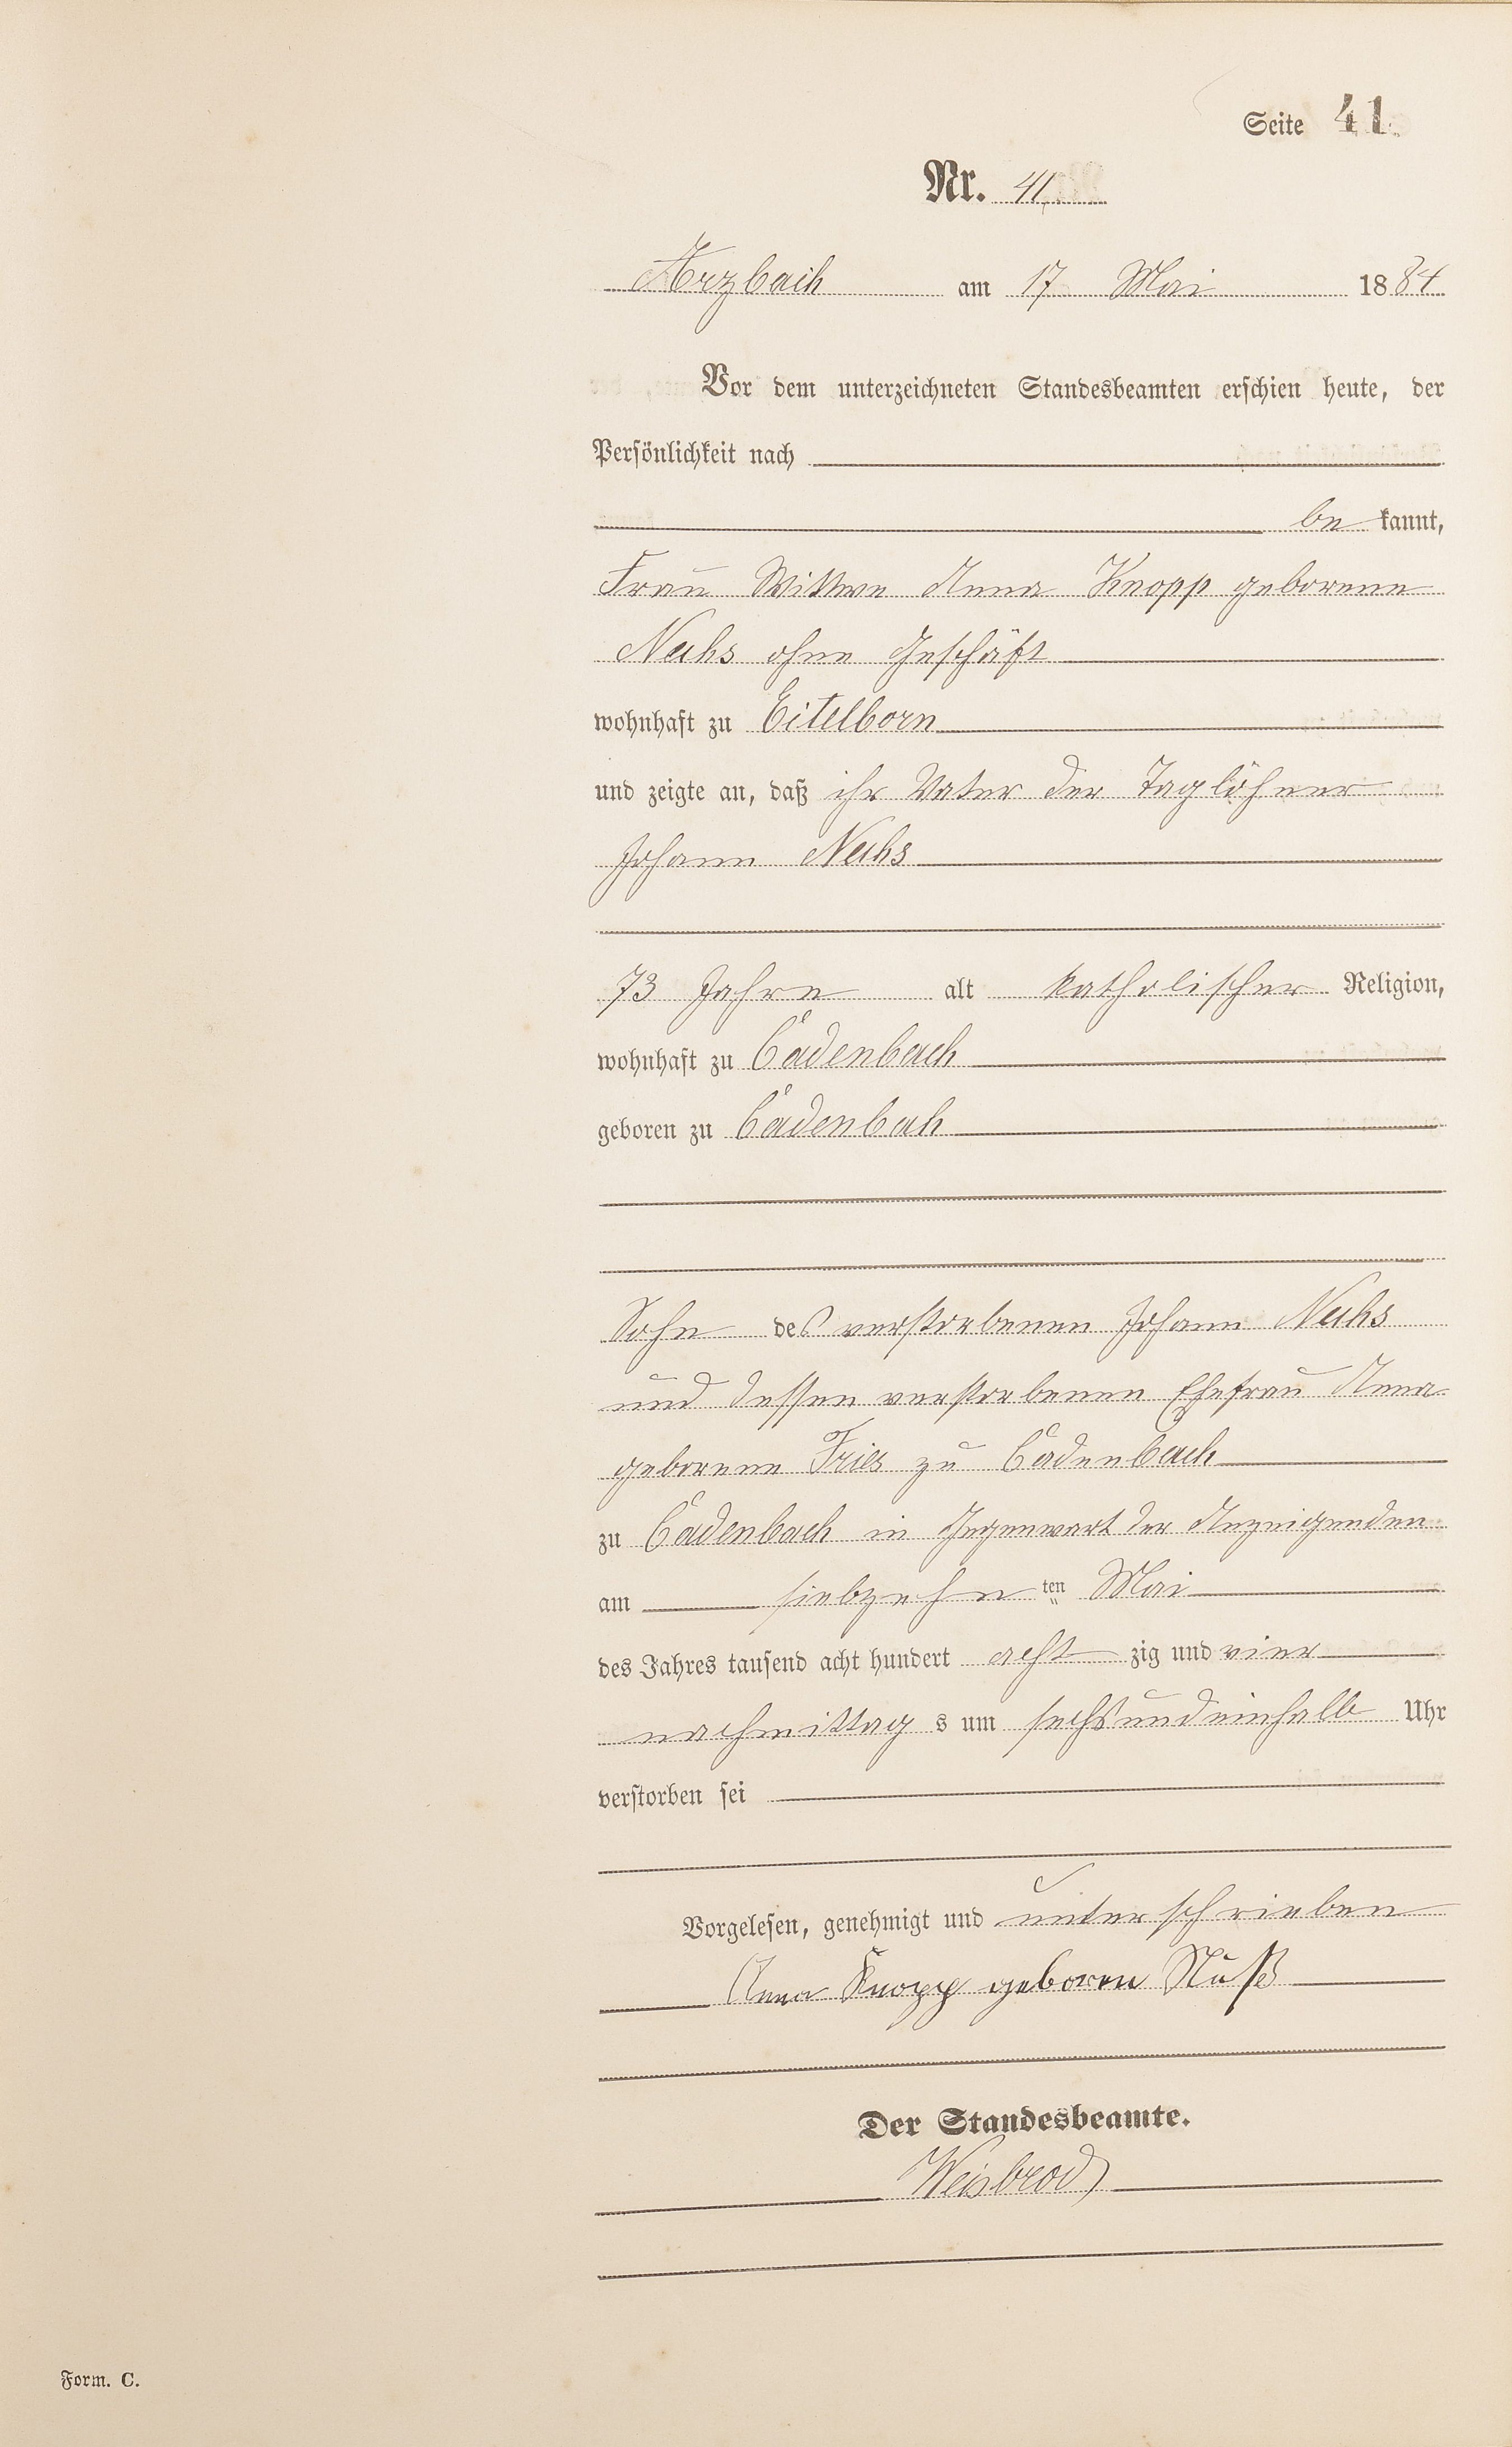 Seite 41.
Nr. 41.
Arzbach am 17 Mai 1884
Vor dem unterzeichneten Standesbeamten erschien heute, der
Persönlichkeit nach
be kannt,
Frau Wittwe Anna Knopp geborene
ohne Geschäft
wohnhaft zu Eitelborn
und zeigte an, daß ihr Vater der Taglöhner
Johann
73 Jahre alt katholischer Religion,
wohnhaft zu Cadenbach
geboren zu Cadenbach
Sohn des verstorbenen Johann
und dessen verstorbenen Ehefrau Anna
geborene Fries zu Cadenbach
zu Cadenbach in Gegenwart der Anzeigenden
am siebzehnten Mai
des Jahres tausend acht hundert acht zig und vier
nachmittag s um sechsundeinhalb Uhr
verstorben sei
Vorgelesen, genehmigt und unterschrieben
Anna Knopp geboren Nuß
Der Standesbeamte.
Weisbrod
Form. C.